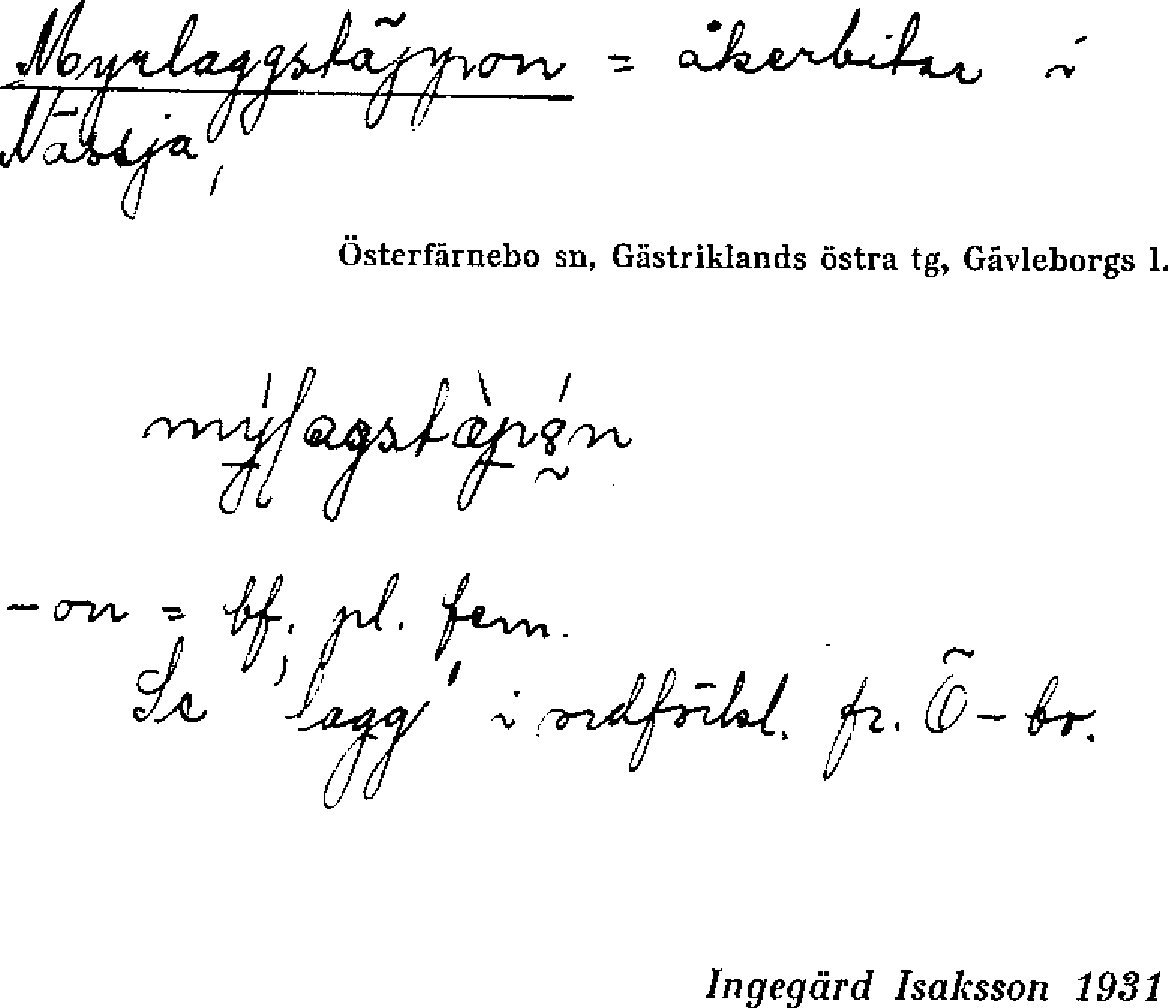 Myrlaggstäppon = åkerbitar i
Nässja,
Österfärnebo sn, Gästriklands östra tg, Gävleborgs l.
-on = bf. pl. fem.
Se 'lagg' i ordförkl. fr. Ö-bo.
Ingegärd Isaksson 1931